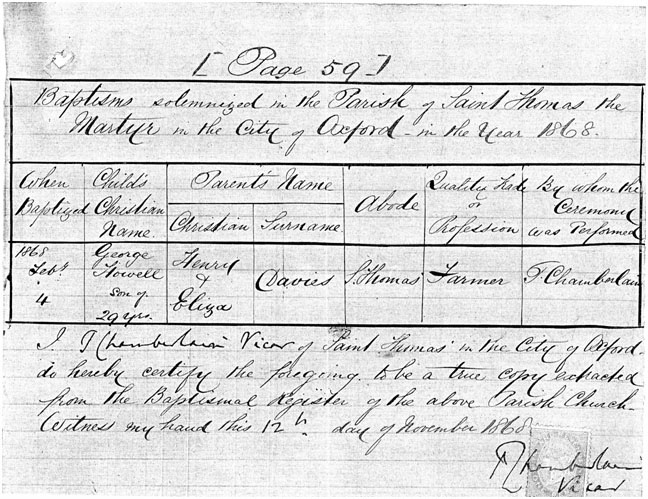 [ Page 59 ]
Baptisms solemnized in the Parish of Saint Thomas the
Martyr in the City of Oxford - in the Year 1868.
When Baptized
Child's Christian Name.
Parents Name
Christian
Surname
Abode
Quality Trade or Profession
By whom the Ceremony was Performed
1868 Feby 4
George Howell son of 29 yrs.
Henry & Eliza
Davies
S. Thomas
Farmer
T Chamberlain
I T Chamberlain Vicar of Saint Thomas' in the City of Oxford-
do hereby certify the foregoing to be a true copy extracted
from the Baptismal Register of the above Parish Church-
Witness my hand this 12th day of November 1868
T Chamberlain
Vicar